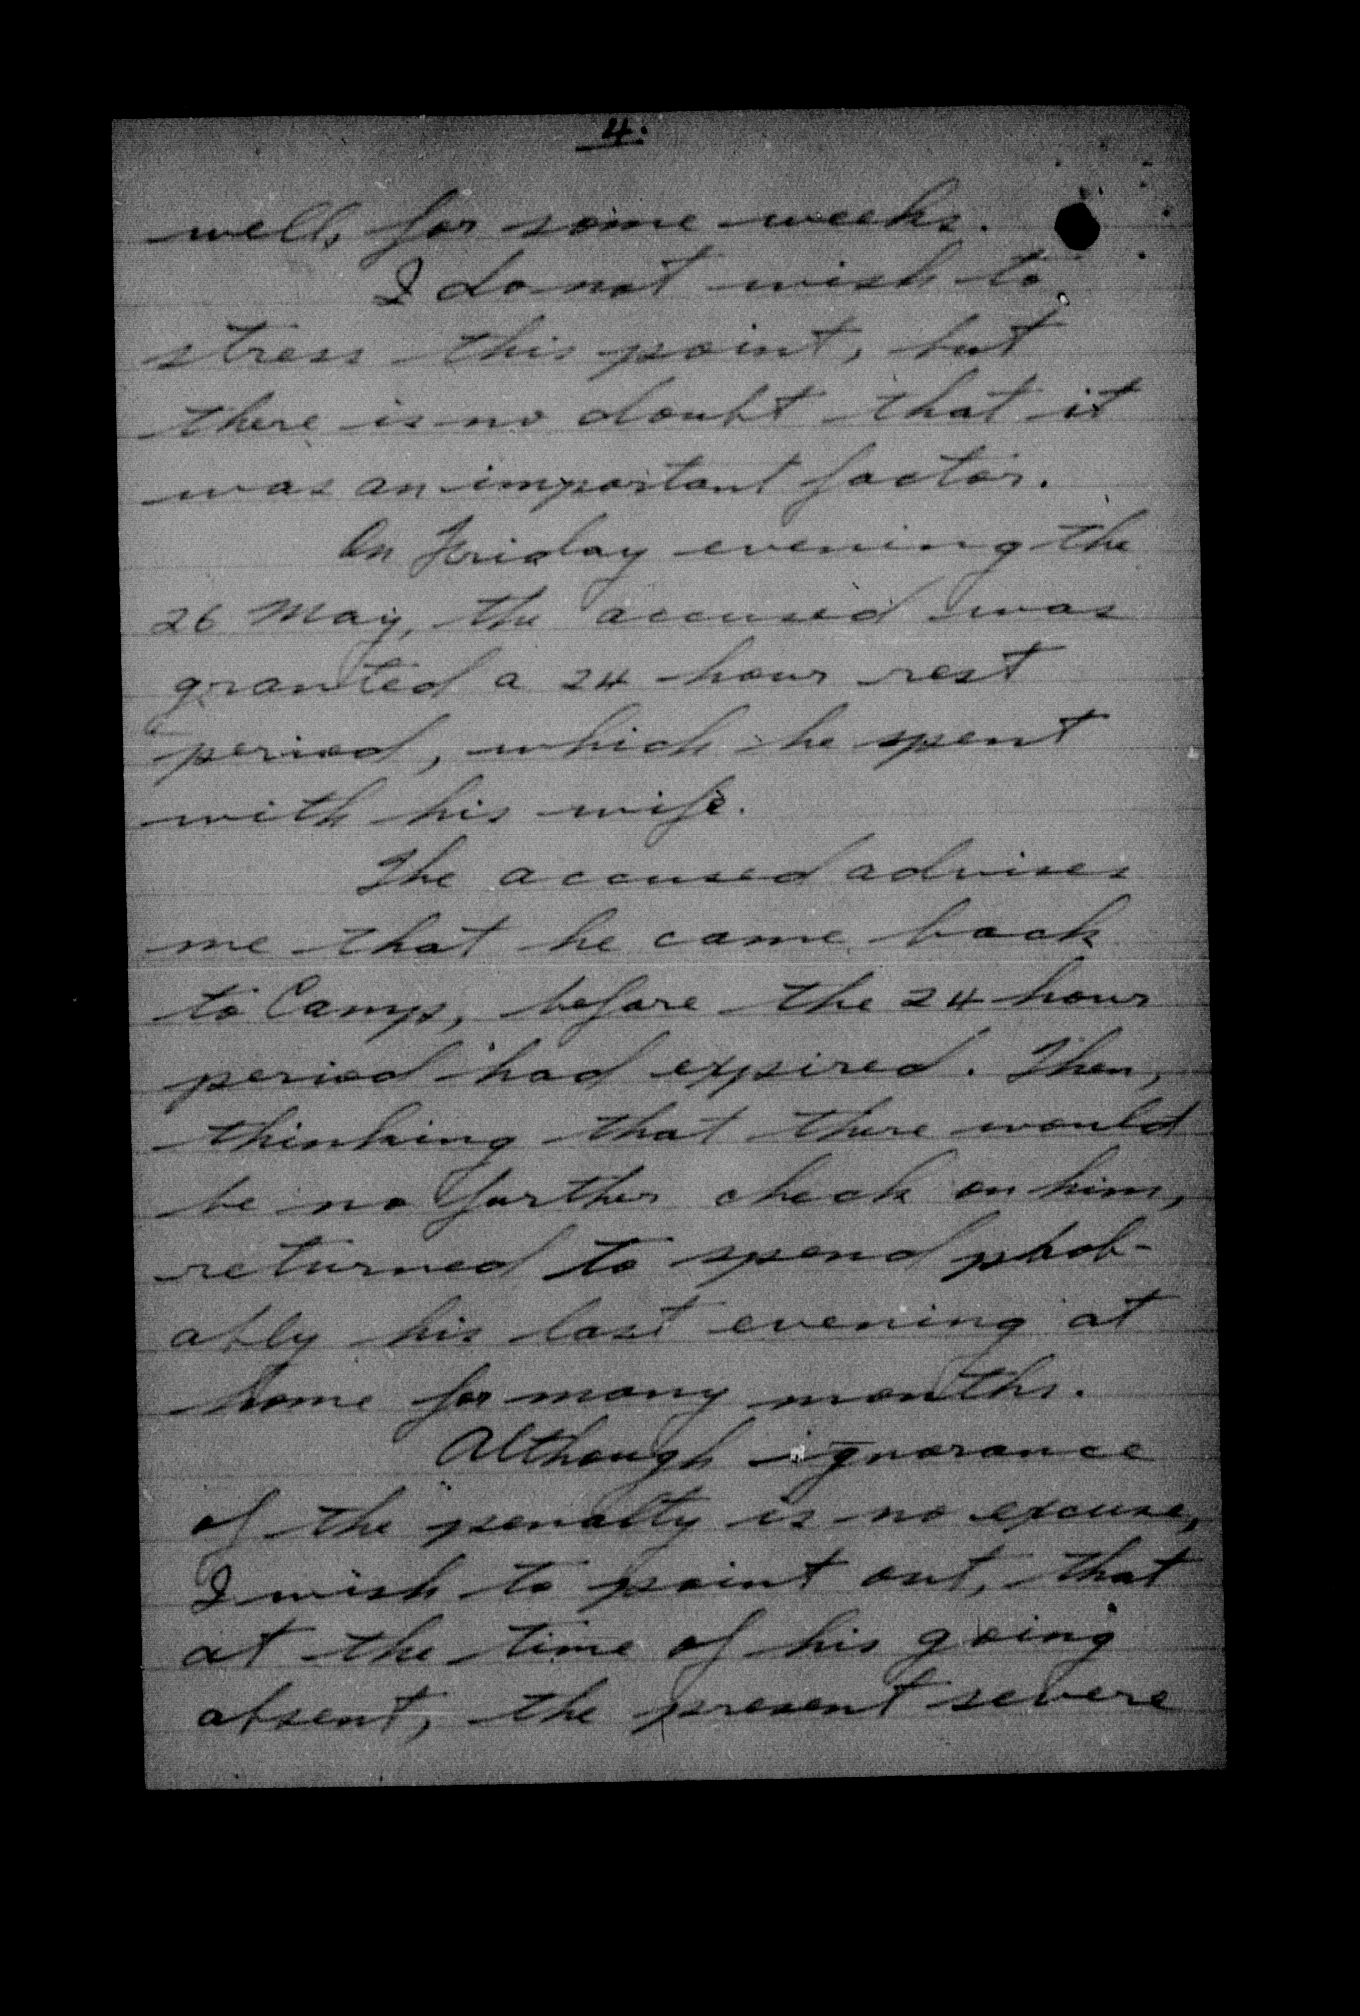 4.
well, for some weeks.
I do not wish to
stress this point, but
there is no doubt that it
was an important factor.
On Friday evening the
26 May, the accused was
granted a 24 hour rest
period, which he spent
with his wife.
The accused advises
me that he came back
to Camp, before the 24 hour
period had expired. Then,
thinking that there would
be no further check on him,
returned to spend prob-
ably his last evening at
home for many months.
Although ignorance
of the penalty is no excuse,
I wish to point out, that
at the time of his going
absent, the present severe